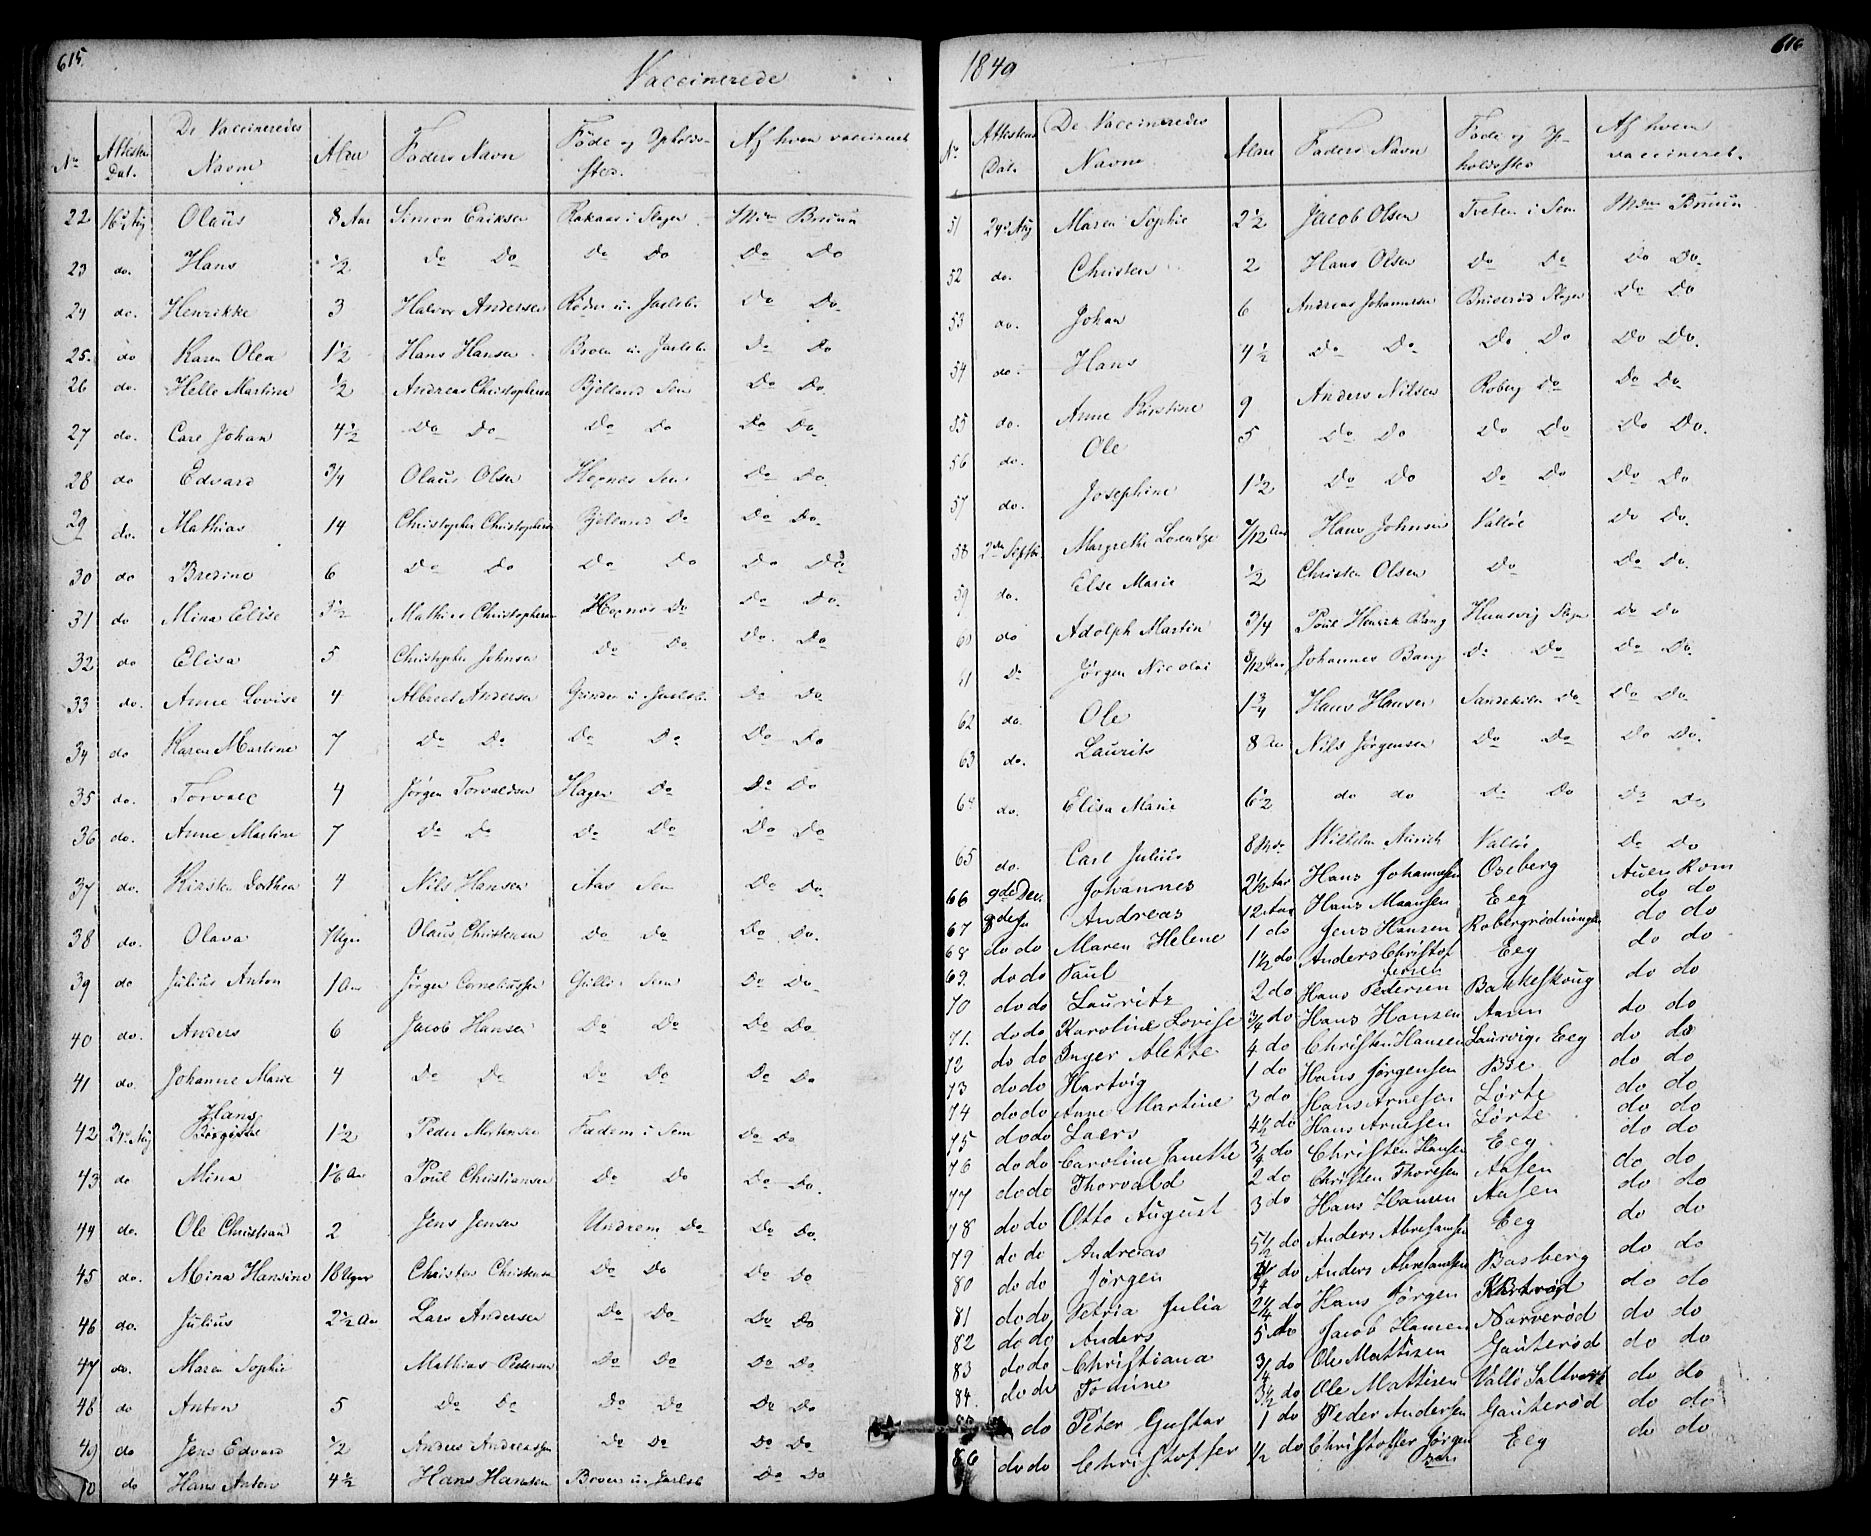 615
Vaccinerede
No Attesten Dat. De Vaccineredes Navne Alder Faders Navn Føde og Opholds-sted Af hvem vaccineret
22 16 Aug Olaus 8 Aar Simon Eriksen i Slagen Mdm Bruun
23 do. Hans 1/2 Do Do Do Do Do Do
24 do. Henrikke 3 Halvor Andersen Røden u. Jarlsb. Do Do
25. do Karen Olea 1 1/2 Hans Hansen Broen u. Jarlsb. Do Do
26 do. Helle Martine 1/2 Andreas Christophersen Bjelland Sem Do Do
27 do. Carl Johan 4 1/2 Do Do Do Do Do Do
28 do Edvard 3/4 Olaus Olsen Hognes Sem Do Do
29 do. Mathias 14 Christopher Christophersen Bjelland Do Do Do
30 do Bredine 6 Do Do Do Do Do Do
31 do Mina Elise 3 1/2 Mathias Christophersen Hognes Do Do Do
32 do Elisa 5 Christopher Johnsen Do Do Do Do
33 do. Anne Lovise 4 Albret Andersen Grinden u. Jarlsb. Do Do
34 do Karen Martine 7 Do Do Do Do Do Do
35 do. Torvall 4 Jørgen Torvaldsen Hagen Do Do Do
36 do. Anne Martine 7 Do Do Do Do Do Do
37 do. Kirsten Dorthea 4 Nils Hansen Aas Sem Do Do
38 do. Olava 7 Uger Olaus Christensen Do Do Do Do
39 do Julius Anton 1 Aar Jørgen Corneliussen Gullie Sem Do Do
40 do. Anders 6 Jacob Hansen Do Do Do Do
41 do. Johanne Marie 4 Do Do Do Do Do Do
42 24 Aug Hans Birgitte 1 1/2 Peder Mortensen Fadem i Sem Do Do
43 do Mina 1 1/6 Aar Poul Christiansen Do Do Do Do
44 do. Ole Christian 2 Jens Jensen Undrem Do Do Do
45 do. Mina Hansine 18 Uger Christen Christensen Do Do Do Do
46 do. Julius 2 1/2 Aar Lars Andersen Do Do Do Do
47 do. Maren Sophie Mathias Pedersen Do Do Do Do
48 do Anton 5 Do Do Do Do Do Do
49 do Jens Edvard 1/2 Anders Andreassen Do Do Do Do
50 do Hans Anton 4 1/2 Hans Hansen Broen u. Jarlsb Do Do
1840
616
No Attestens Dat. De Vaccineredes Navne Alder Faders Navn Føde og Opholdssted Af hvem vaccineret.
51 24 Aug Maren Sophie 2 1/2 Jacob Olsen Treten i Sem Mdm Bruun
52 do. Christen 2 Hans Olsen Do Do Do Do
53 do. Johan 6 Andreas Johannessen Brúserød Slagen Do Do
54 do. Hans 4 1/2 Do Do Do Do Do Do.
55 do. Anne Kirstine 9 Anders Nilsen Roberg Do Do Do
56 do. Ole 5 Do Do Do Do Do Do.
57 do. Josephine 1 1/2 Do Do Do Do Do Do
58 2den Septbr Margrethe Lorentze 7/12 Aar Hans Johnsen Valløe Do Do.
59 do. Else Marie 1/2 Christen Olsen Do Do Do.
60 do Adolph Martin 3/4 Poul Henrik Bang Husvig Slagen Do Do
61 Do Jørgen Nicolai 8/12 Aar Johannes Bang Do Do Do Do.
62 do. Ole 1 3/4 Hans Hansen Sandekilen Do Do Do.
63 do. Laurits 8 Aar Nils Jørgensen Do Do Do Do.
64 do. Elisa Marie 6 1/2 do do Do Do Do Do
65 do. Carl Julius 8 Mdr Wilhelm Valløe Do Do
66 9de Dec. Johannes 2 1/2 Aar Hans Johannessen Oseberg Auen Rom
67 8de Ja Andreas 12 Aar Hans Maansen Eeg do do
68 do do Maren Helene 1 do Jens Hansen Robergrødningen do do
69. do do Paul 1 1/2 do Anders Christofersen Eeg do do
70 do do Lauritz 2 do Hans Pedersen Bakkeskoug do do
71. do do Karoline Lovise 3/4 do Hans Hansen Aasen do do
72 do do Inger Alette 4 do Christen Hansen Laurvigs Eeg do do
73 do do Hartvig 1 do Hans Jørgensen Bøe do do
74 do do Anne Martine 3 do Hans Arnesen Lørte do do
75 do do Laers 4 1/2 do Hans Arnesen Lørte do do
76 do do Caroline Janette 3/4 do Christen Hansen Eeg do do
77 do do Thorvald 2 do Christen Thoresen Aasen do do
78 do do Otto August 3 do Hans Hansen Aasen do do
79 do do Andreas 5 1/2 do Anders Abrahamsen Eeg do do
80 do do Jørgen 3/4 do Anders Abrahamsen Basberg do do
81 do do Petria Julia 2 1/4 do Hans Jørgen do do
82 do do Anders 5 Mo Jacob Hansen Narverød do do
83 do do Christiana 3/4 do Ole Mattisen Gauterød do do
84. do do Tomine 3 1/2 do Ole Mattisen Vallø Saltverk do do
85 do Peter Gustav 1 do Peder Andersen Gauterød do do
86 do do Christoffer 1/2 do Christoffer Jørgensen Eeg do do